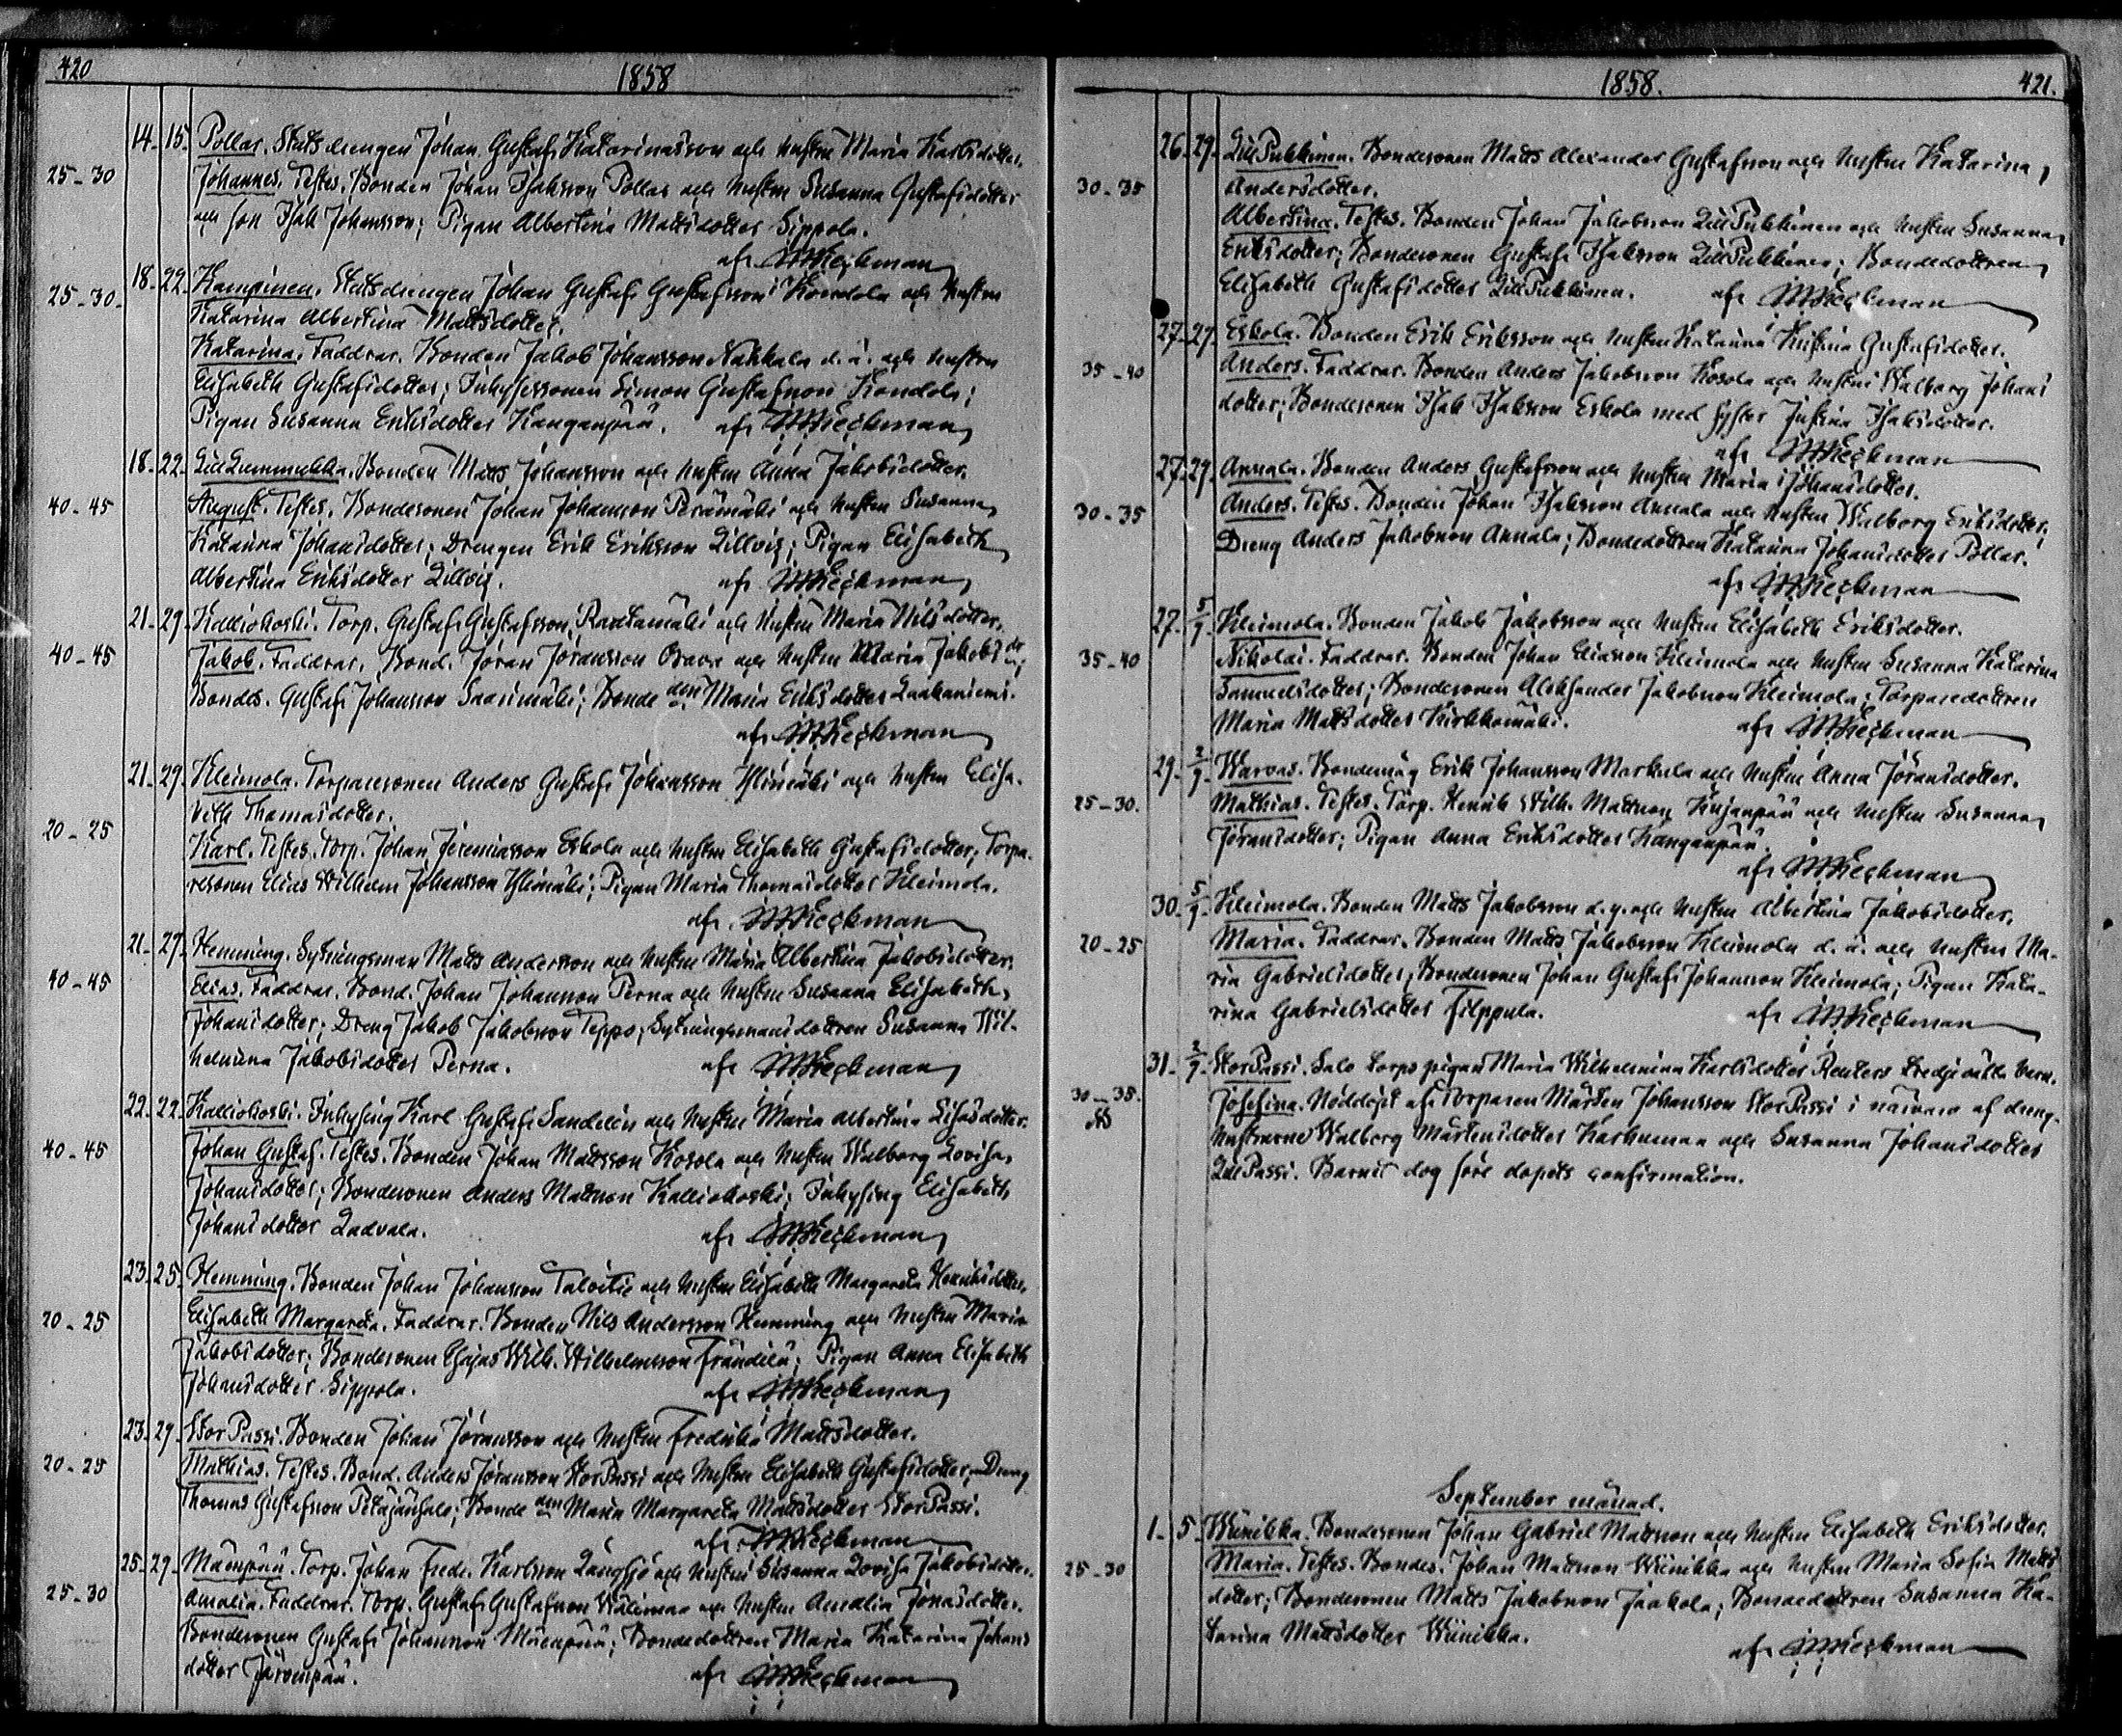 420
1858
14. 15. Pollar. Statsdrengen Johan Gustaf Katarinasson och hustru Maria Karlsdotter.
25-30 Johannes. Testes. Bonden Johan Isaksson Pollar och hustru Susanna Gustafsdotter
och son Isak Johansson; Pigan Albertina Mattsdotter Sippola.
af
18. 22. Kampinen. Statsdrengen Johan Gustaf Gustafsson Kondola och hustru
25-30. Katarina Albertina Mattsdotter.
Katarina. Faddrar. Bonden Jakob Johansson Nahkala d. ä. och hustru
Elisabeth Gustafsdotter; Inhysessonen Simon Gustafsson Kondola;
Pigan Susanna Eriksdotter Kanganpää. af
18. 22. LillLummukka. Bonden Matts Johansson och hustru Anna Jakobsdotter.
40-45 August. Testes. Bondesonen Johan Johansson Perämäki och hustru Susanna
Katarina Johansdotter; Drengen Erik Eriksson Lillvis; Pigan Elisabeth
Albertina Eriksdotter Lillvis. af
21. 29. Kalliokoski. Torp. Gustaf Gustafsson Rantamäki och hustru Maria Nilsdotter.
40-45 Jakob. Faddrar. Bond. Jöran Jöransson och hustru Maria Jakobs dr;
Bondes. Gustaf Johansson Saarimäki; Bonde dn Maria Eriksdotter
af
21. 29. Kleimola. Torparesonen Anders Gustaf Johansson Ylimäki och hustru Elisa-
beth Thomasdotter.
20-25 Karl. Testes. Torp. Johan Jeremiasson Eskola och hustru Elisabeth Gustafsdotter; Torpa-
resonen Elias Wilhelm Johansson Ylimäki; Pigan Maria Thomasdotter Kleimola.
af
21. 27. Hemming. Sytningsman Matts Andersson och hustru Maria Albertina Jakobsdotter.
40-45 Elias. Faddrar. Bond. Johan Johansson Perna och hustru Susanna Elisabeth
Johansdotter; Dreng Jakob Jakobsson Teppo; Sytningsmansdottren Susanna Wil-
helmina Jakobsdotter Perna. af
22. 22. Kalliokoski. Inhysing Karl Gustaf Sandelin och hustru Maria Albertina
40-45 Johan Gustaf. Testes. Bonden Johan Mattsson Kosola och hustru Walborg Lovisa
Johansdotter; Bondesonen Anders Mattsson Kalliokoski; Inhysing Elisabeth
Johansdotter Ladvala. af
23. 25. Hemming. Bonden Johan Johansson Talvitie och hustru Elisabeth Margareta Henriksdotter.
20-25 Elisabeth Margareta. Faddrar. Bonden Nils Andersson Hemming och hustru Maria
Jakobsdotter; Bondesonen Wilh. Wilhelmsson Frändilä; Pigan Anna Elisabeth
Johansdotter Sippola. af
23. 29. StorPassi. Bonden Johan Jöransson och hustru Fredrika Mattsdotter.
20-25 Mathias. Testes. Bond. Anders Jöransson StorPassi och hustru Elisabeth Gustafsdotter; Dreng
Thomas Gustafsson; Bonde dn Maria Margareta Mattsdotter StorPassi.
af
25. 29. Mäenpää. Torp. Johan Fredr. Karlsson Långsjö och hustru Susanna Lovisa Jakobsdotter.
25-30 Amalia. Faddrar. Torp. Gustaf Gustafsson Välimaa och hustru Amalia Jonasdotter.
Bondesonen Gustaf Johansson Mäenpää; Bondedottren Maria Katarina Johans
dotter Järvenpää. af
1858. 421.
26. 29. LillPukkinen. Bondesonen Matts Alexander Gustafsson och hustru Katarina
30-35 Andersdotter.
Albertina. Testes. Bonden Johan Jakobsson LillPukkinen och hustru Susanna
Eriksdotter; Bondesonen Gustaf Isaksson LillPukkinen; Bondedottren
Elisabeth Gustafsdotter LillPukkinen. af
27. 29. Eskola. Bonden Erik Eriksson och hustru Katarina Kristina Gustafsdotter.
35-40 Anders. Faddrar. Bonden Anders Jakobsson Kosola och hustru Walborg Johans
dotter; Bondesonen Isak Isaksson Eskola med syster Justina Isaksdotter.
af
27. 29. Annala. Bonden Anders Gustafsson och hustru Maria Johansdotter.
30-35 Anders. Testes. Bonden Johan Isaksson Annala och hustru Walborg Eriksdotter;
Dreng Anders Jakobsson Annala; Bondedottren Katarina Johansdotter Pollar.
af
27. 5/9. Kleimola. Bonden Jakob Jakobsson och hustru Elisabeth Eriksdotter.
35-40 Nikolai. Faddrar. Bonden Johan Eliasson Kleimola och hustru Susanna Katarina
Samuelsdotter; Bondesonen Aleksander Jakobsson Kleimola; Torparedottren
Maria Mattsdotter Kirkkomäki. af
29. 2/9. Warvas. Bondemåg Erik Johansson Markula och hustru Anna Jöransdotter.
25-30. Mathias. Testes. Torp. Henrik Wilh. Mattsson Kujanpää och hustru Susanna
Jöransdotter; Pigan Anna Eriksdotter Kanganpää.
af
30. 5/9. Kleimola. Bonden Matts Jakobsson d. y. och hustru Albertina Jakobsdotter.
20-25 Maria. Faddrar. Bonden Matts Jakobsson Kleimola d. ä. och hustru Ma-
ria Gabrielsdotter; Bondesonen Johan Gustaf Johansson Kleimola; Pigan Kata-
rina Gabrielsdotter Filppula. af
31. 2/9. StorPassi. Salo torps pigan Maria Wilhelmina Karlsdotter Renters tredje oäkta barn.
30-35. Josefina. Nöddöpt af Torparen Mårten Johansson StorPassi i närvaro af dreng-
hustrurne Walborg Mårtensdotter Karhumaa och Susanna Johansdotter
LillPassi. Barnet dog före dopets confirmation.
September månad.
1. 5. Wiinikka. Bondesonen Johan Gabriel Mattsson och hustru Elisabeth Eriksdotter.
25-30 Maria. Testes. Bondes. Johan Mattsson Wiinikka och hustru Maria Sofia Matts
dotter; Bondesonen Matts Jakobsson Jaakola; Bondedottren Susanna Ka-
tarina Mattsdotter Wiinikka. af